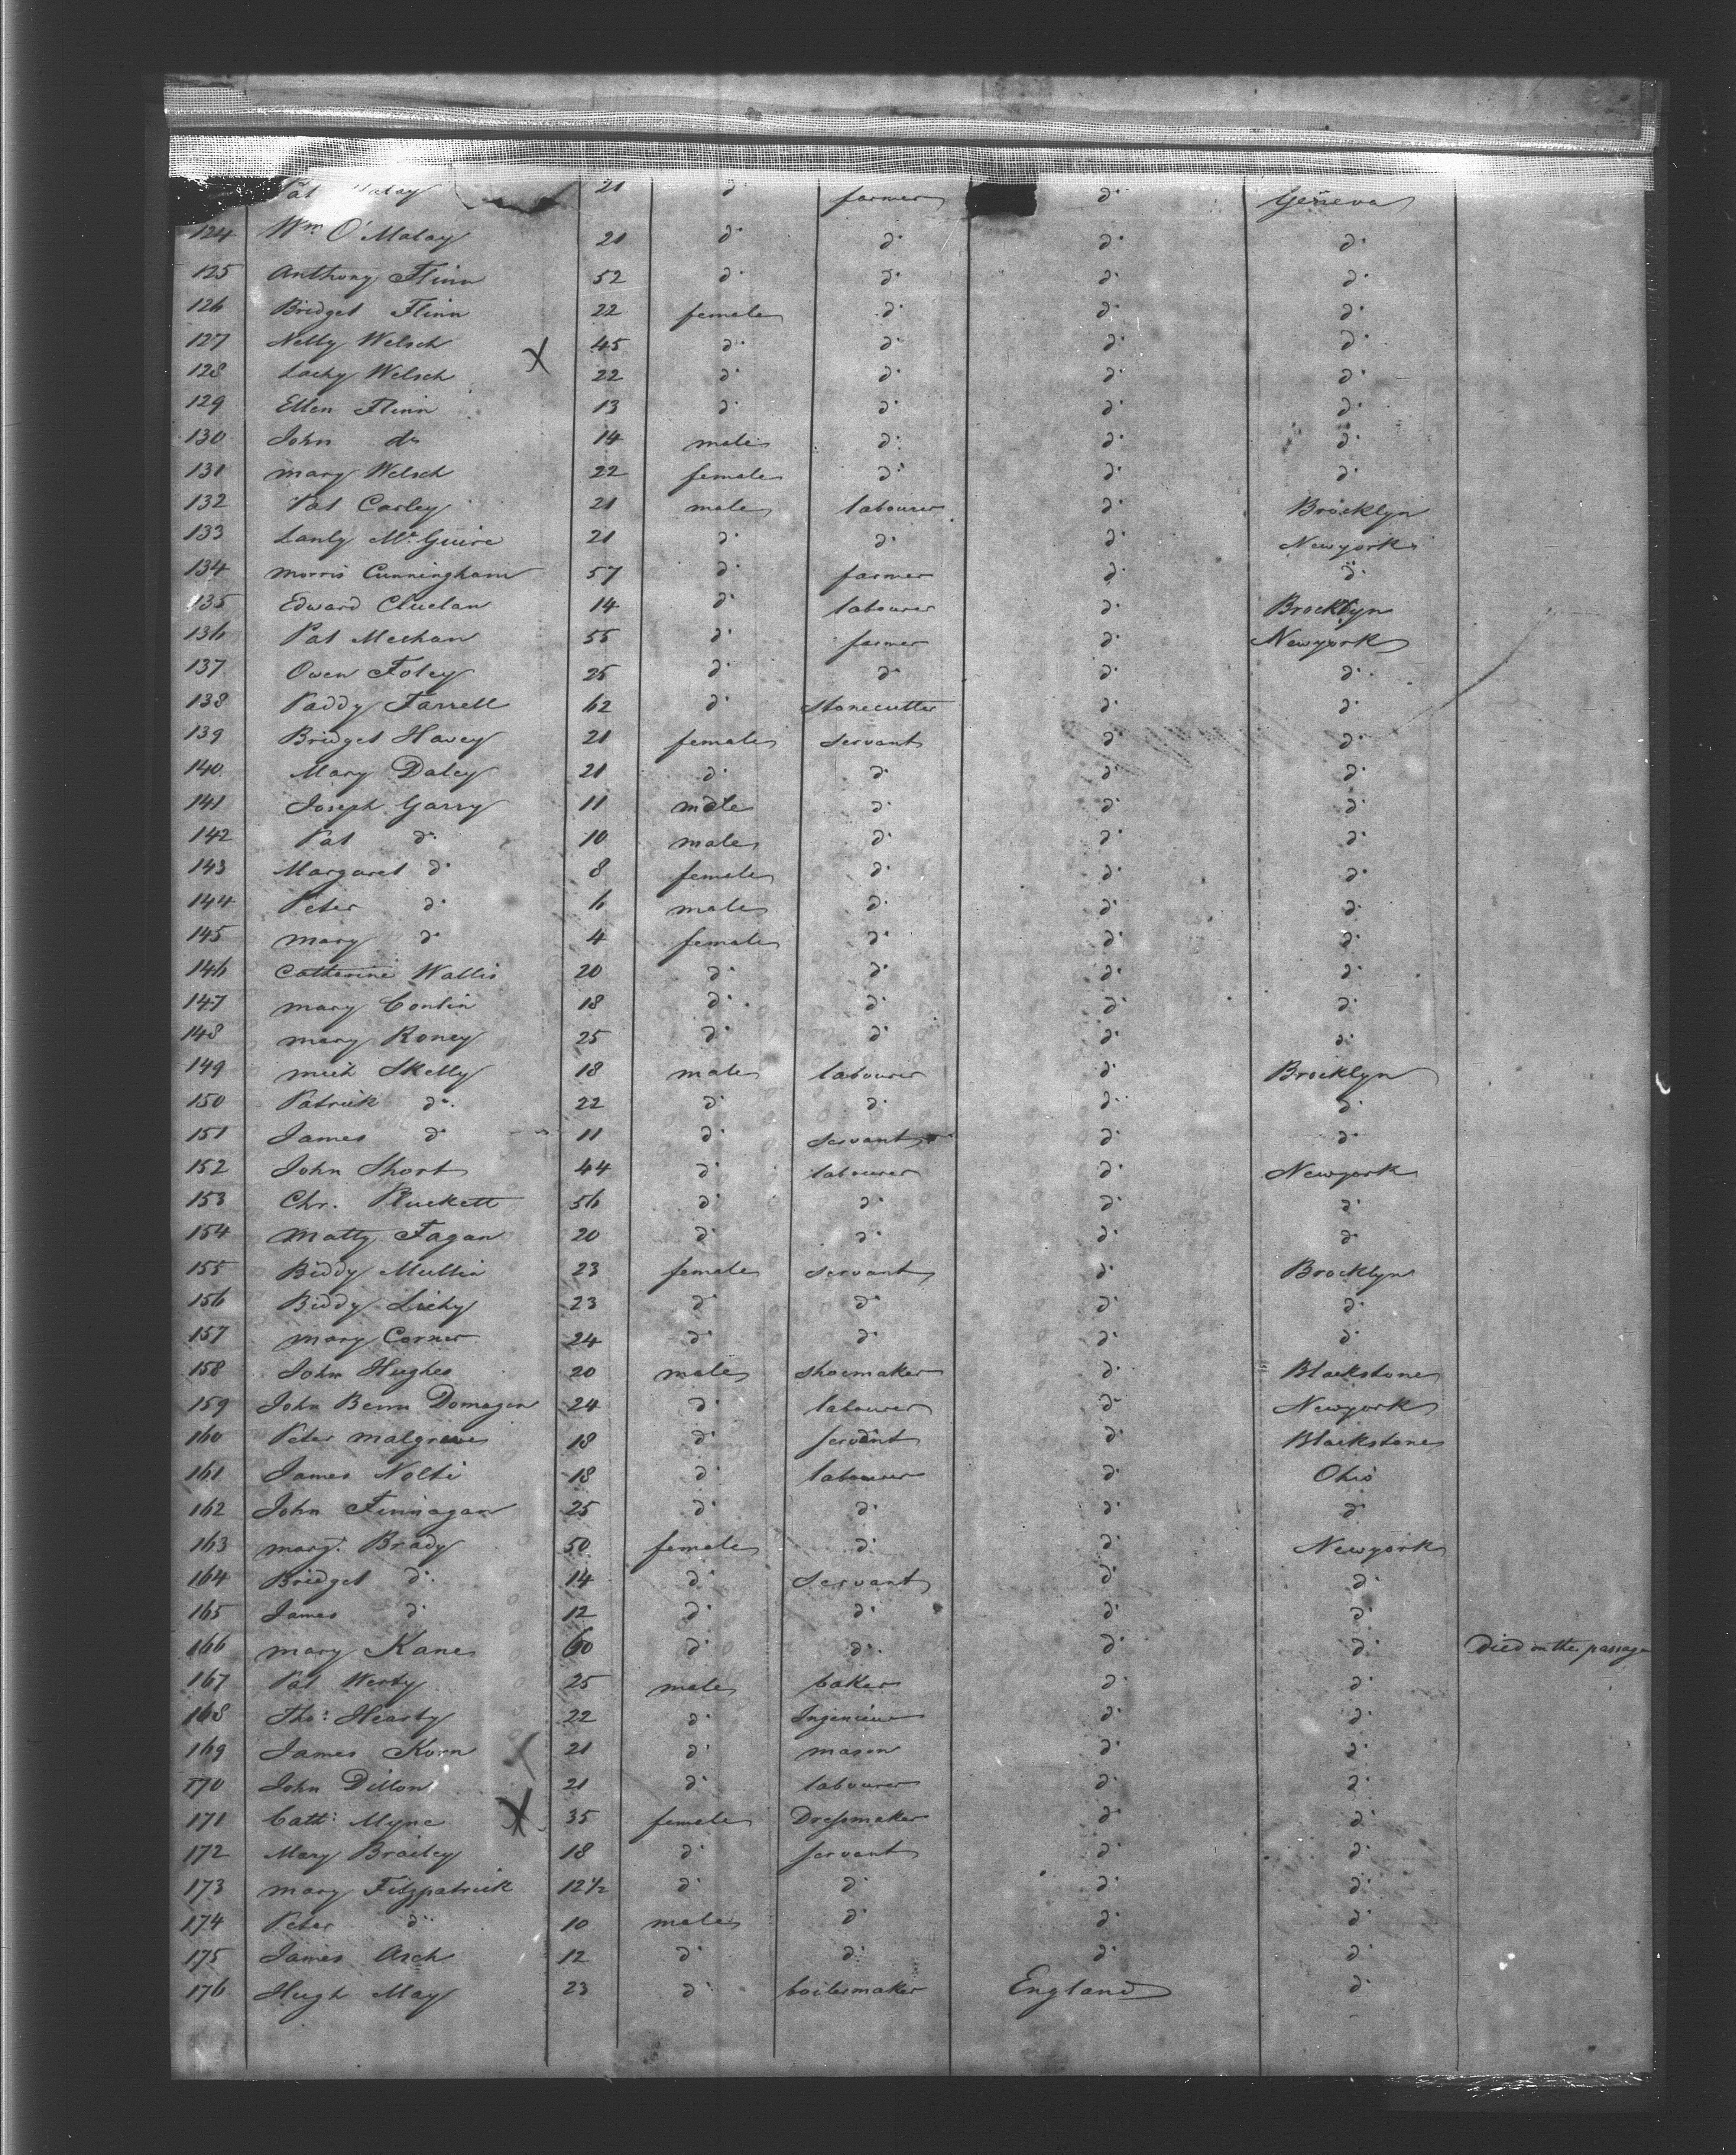 Pat 21 d° farmer d° Geneva
124 Wm O'Malay 21 d° d° d° d°
125 Anthony Flinn 52 d° d° d° d°
126 Bridget Flinn 22 female d° d° d°
127 Nelly Welsch 45 d° d° d° d°
128 Lacky Welsch 22 d° d° d° d°
129 Ellen Flinn 13 d° d° d° d°
130 John do 14 male d° d° d°
131 Mary Welsch 22 female d° d° d°
132 Pat Carley 21 male labourer d° Brocklyn
133 Lanly McGuire 21 d° d° d° Newyork
134 Morris Cunningham 57 d° farmer d° d°
135 Edward Cluelan 14 d° labourer d° Brocklyn
136 Pat Mechan 55 d° farmer d° Newyork
137 Owen Foley 25 d° d° d° d°
138 Paddy Farrell 62 d° Stonecutter d° d°
139 Bridget Havey 21 female servant d° d°
140 Mary Daley 21 d° d° d° d°
141 Joseph Garry 11 male d° d° d°
142 Pat d° 10 male d° d° d°
143 Margaret d° 8 female d° d° d°
144 Peter d° 6 male d° d° d°
145 Mary d° 4 female d° d° d°
146 Catherine Wallis 20 d° d° d° d°
147 Mary Conlin 18 d° d° d° d°
148 Mary Roney 25 d° d° d° d°
149 Mich Skelly 18 male labourer d° Brocklyn
150 Patrick d° 22 d° d° d° d°
151 James d° 11 d° servant d° d°
152 John Short 44 d° labourer d° Newyork
153 Chr. Pluckett 56 d° d° d° d°
154 Matty Fagan 20 d° d° d° d°
155 Biddy Mullin 23 female servant d° Brocklyn
156 Biddy 23 d° d° d° d°
157 Mary Corner 24 d° d° d° d°
158 John Hughes 20 male shoemaker d° Blackstone
159 John Benn Domegan 24 d° labourer d° Newyork
160 Peter Malgrewe 18 d° servant d° Blackstone
161 James Nolti 18 d° labourer d° Ohio
162 John Finnagan 25 d° d° d° d°
163 Margt. Brady 50 female d° d° Newyork
164 Bridget d° 14 d° Servant d° d°
165 James d° 12 d° d° d° d°
166 Mary Kane 60 d° d° d° d° Died on the passage
167 Pat Werty 25 male baker d° d°
168 Tho: Hearty 22 d° Ingenieur d° d°
169 James Korn 21 d° mason d° d°
170 John Dillon 21 d° labourer d° d°
171 Cath: Myne 35 female Dressmaker d° d°
172 Mary Brailey 18 d° servant d° d°
173 Mary Fitzpatrick 12½ d° d° d° d°
174 Peter d° 10 male d° d° d°
175 James Asch 12 d° d° d° d°
176 Hugh May 23 d° boilermaker England d°